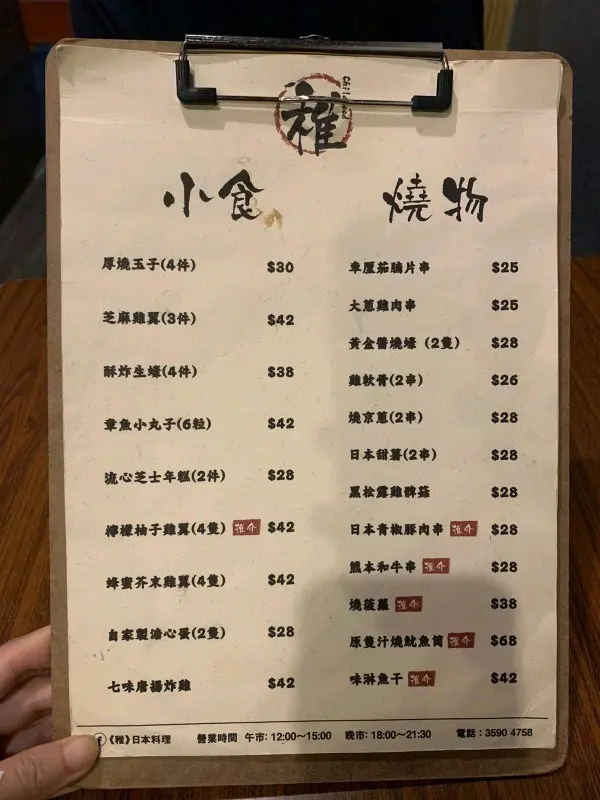 稚
小食
厚燒玉子(4件) $30
芝麻雞翼(3件) $42
酥炸生蠔(4件) $38
章魚小丸子(6粒) $42
流心芝士年糕(2件) $28
檸檬柚子雞翼(4隻) 推介 $42
蜂蜜芥末雞翼(4隻) $42
自家製溏心蛋(2隻) $28
七味唐揚炸雞 $42
燒物
車厘茄腩片串 $25
大蔥雞肉串 $25
黃金醬燒蠔 (2隻) $28
雞軟骨(2串) $26
燒京蔥(2串) $28
日本甜薯(2串) $28
黑松露雞髀菇 $28
日本青椒豚肉串 推介 $28
熊本和牛串 推介 $28
燒菠蘿 推介 $38
原隻汁燒魷魚筒 推介 $68
味淋魚干 推介 $42
《稚》日本料理 營業時間 午市: 12:00～15:00 晚市: 18:00～21:30 電話 : 3590 4758